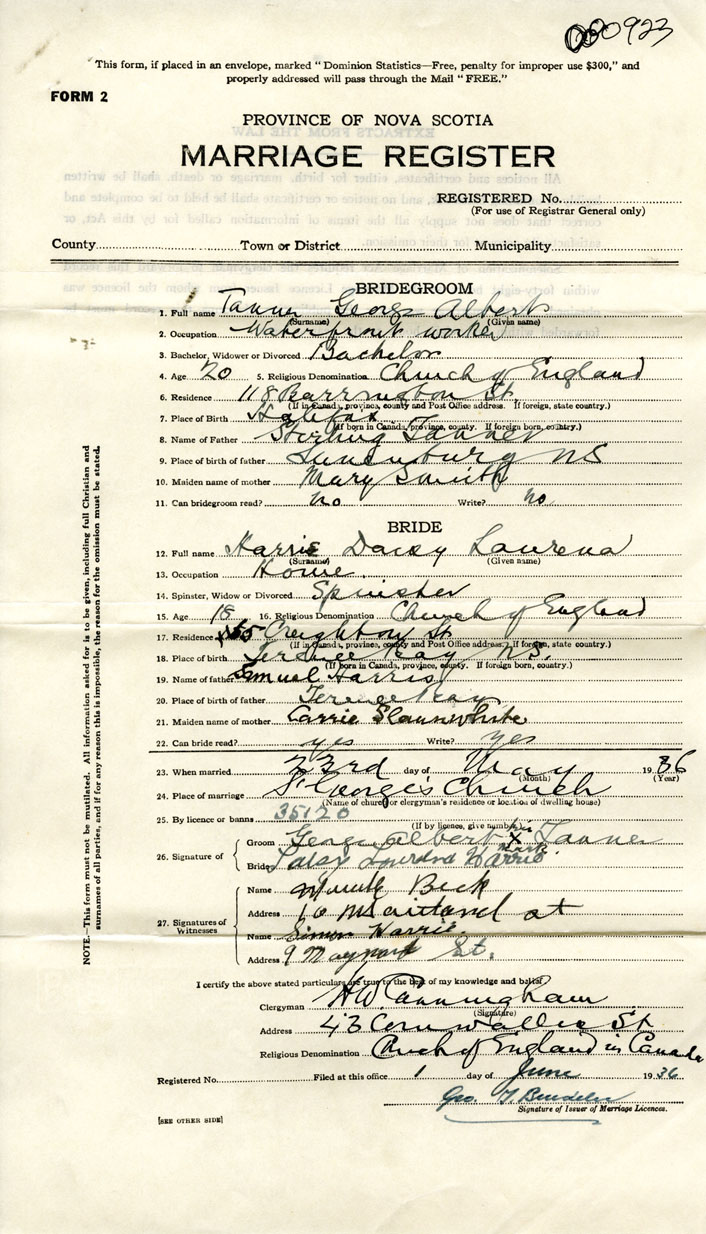 000923
This form, if placed in an envelope, marked "Dominion Statistics—Free, penalty for improper use $300," and
properly addressed will pass through the Mail "FREE."
FORM 2
PROVINCE OF NOVA SCOTIA
MARRIAGE REGISTER
REGISTERED No.
(For use of Registrar General only)
County Town or District Municipality
BRIDEGROOM
1. Full name Tanner George Albert
(Surname) (Given name)
2. Occupation Waterfront worker
3. Bachelor, Widower or Divorced Bachelor
4. Age 20 5. Religious Denomination Church of England
6. Residence 118 Barrington St
(If in Canada, province, county and Post Office address. If foreign, state country.)
7. Place of Birth Halifax
(If born in Canada, province, county. If foreign born, country.)
8. Name of Father Sterling Tanner
9. Place of birth of father Lunenburg NS
10. Maiden name of mother Mary Smith
11. Can bridegroom read? no Write? no
BRIDE
12. Full name Harris Daisy Laurena
(Surname) (Given name)
13. Occupation Home
14. Spinster, Widow or Divorced Spinster
15. Age 18 16. Religious Denomination Church of England
17. Residence Creighton St
(If in Canada, province, county and Post Office address. If foreign, state country.)
18. Place of birth Terence Bay N.S.
(If born in Canada, province, county. If foreign born, country.)
19. Name of father Samuel Harris
20. Place of birth of father Terence Bay
21. Maiden name of mother Carrie Slaunwhite
22. Can bride read? yes Write? yes
23. When married 23rd day of May 1936
(Month) (Year)
24. Place of marriage St George's Church
(Name of church or clergyman's residence or location of dwelling house)
25. By licence or banns 35120
(If by licence, give number)
26. Signature of
Groom George Albert X Tanner
his
mark
Bride Daisy Laurena Harris
27. Signatures of Witnesses
Name Beck
Address 10 Maitland st
Name Simon Harris
Address 9 Maynard St.
I certify the above stated particulars are true to the best of my knowledge and belief.
Clergyman HW Cunningham
(Signature)
Address 43 Cornwallis St
Religious Denomination Church of England in Canada
Registered No. Filed at this office 1 day of June 1936
Geo.
Signature of Issuer of Marriage Licences.
[SEE OTHER SIDE]
NOTE.—This form must not be mutilated. All information asked for is to be given, including full Christian and
surnames of all parties, and if for any reason this is impossible, the reason for the omission must be stated.